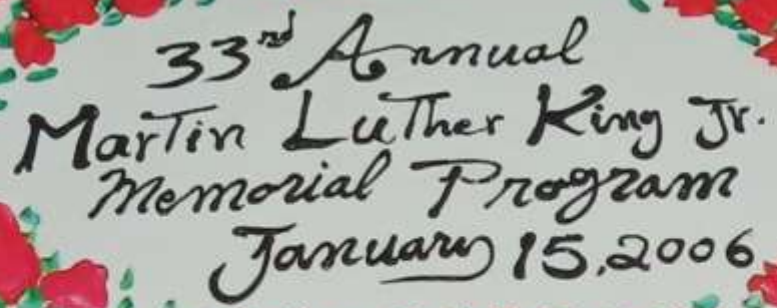 33rd Annual
Martin Luther King Jr.
Memorial Program
January 15, 2006